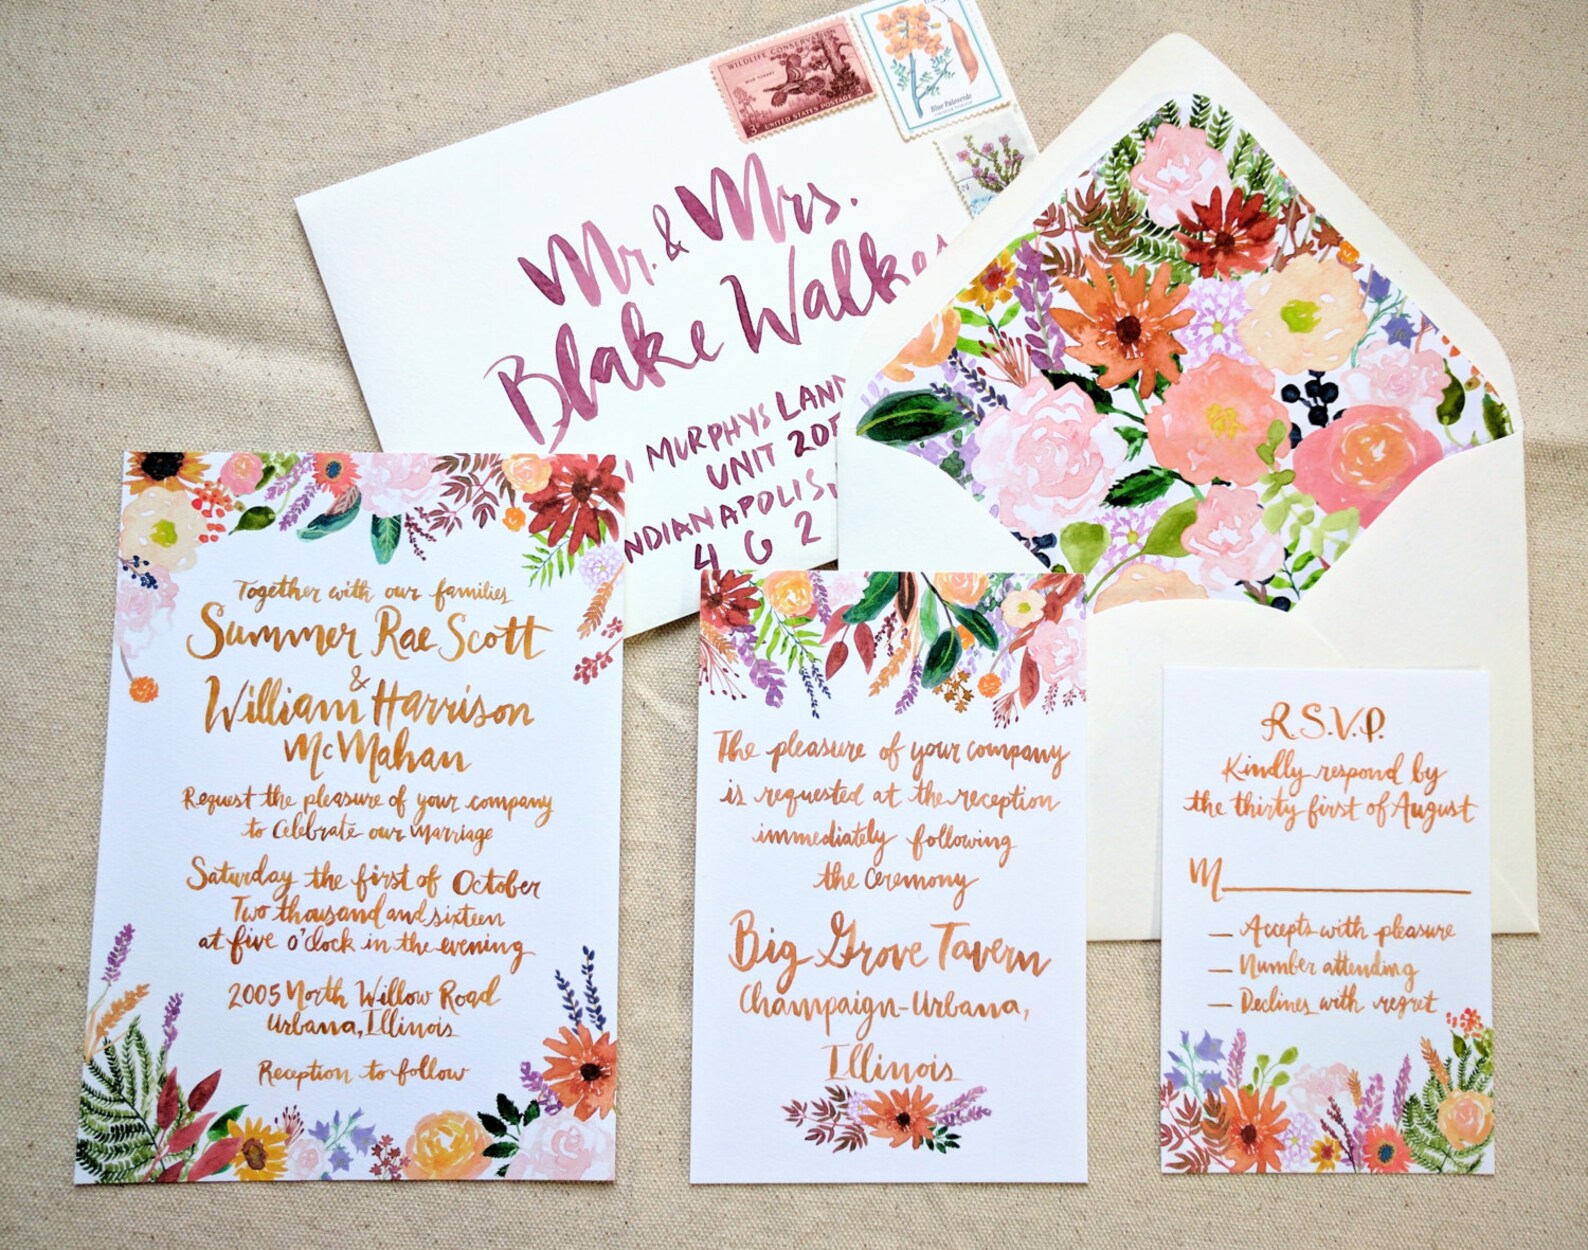 WILDLIFE CONSERVATION
WILD TURKEY
3¢ UNITED STATES POSTAGE
Blue Paloverde
Mr. & Mrs.
Blake Walker
MURPHYS LAN
UNIT 205
NDIANAPOLIS,
4 6 2
Together with our families
Summer Rae Scott
&
William Harrison
McMahan
Request the pleasure of your company
to celebrate our marriage
Saturday the first of October
Two thousand and sixteen
at five o'clock in the evening
2005 North Willow Road
Urbana, Illinois
Reception to follow
The pleasure of your company
is requested at the reception
immediately following
the ceremony
Big Grove Tavern
Champaign-Urbana,
Illinois
R.S.V.P.
Kindly respond by
the thirty first of August
M
Accepts with pleasure
Number attending
Declines with regret